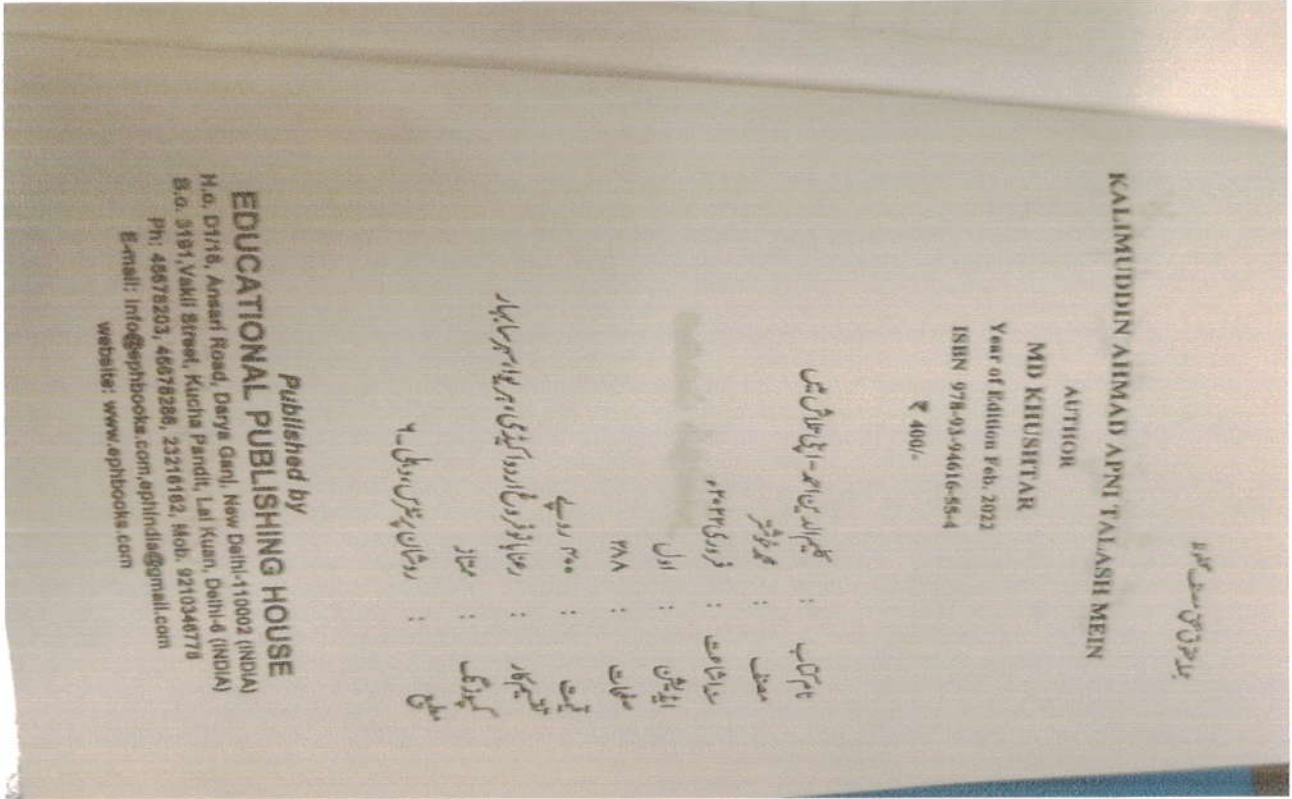 جملہ حقوق بحق مصنف محفوظ
KALIMUDDIN AHMAD APNI TALASH MEIN
AUTHOR
MD KHUSHTAR
Year of Edition Feb. 2022
ISBN 978-93-94616-55-4
₹ 400/-
نام کتاب : کلیم الدین احمد - اپنی تلاش میں
مصنف : محمد خوشتر
سنہ اشاعت : فروری ۲۰۲۲ء
ایڈیشن : اول
صفحات : ۲۸۸
قیمت : ۴۰۰ روپے
تقسیم کار : رعنا بانو فروغ اردو اکیڈمی، بہار
کمپوزنگ : ممتاز
مطبع : روشان پرنٹرس، دہلی۔۶
Published by
EDUCATIONAL PUBLISHING HOUSE
H.o. D1/16, Ansari Road, Darya Ganj, New Delhi-110002 (INDIA)
B.o. 3191,Vakil Street, Kucha Pandit, Lal Kuan, Delhi-6 (INDIA)
Ph: 45678203, 45678286, 23216162, Mob. 9210346778
E-mail: info@ephbooks.com,ephindia@gmail.com
website: www.ephbooks.com